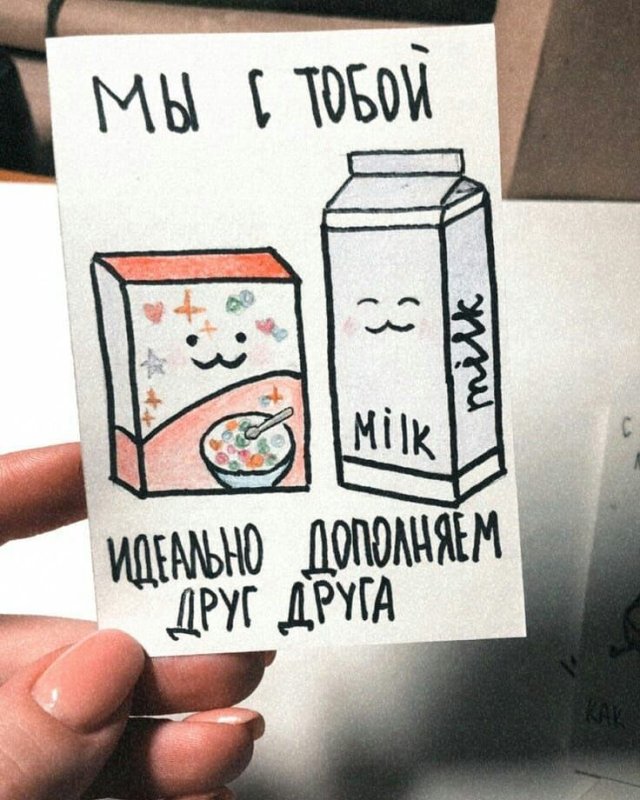 МЫ С ТОБОЙ
milk
Milk
ИДЕАЛЬНО ДОПОЛНЯЕМ
ДРУГ ДРУГА
С
КАК